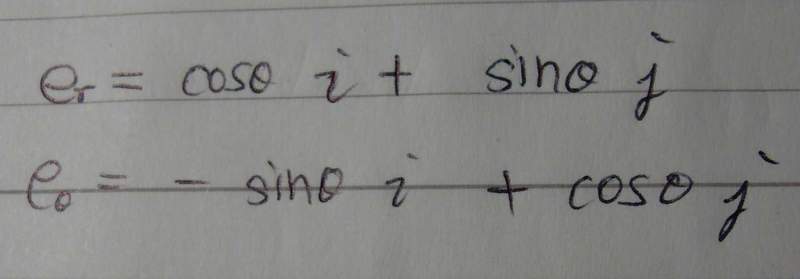 e_r = cosθ i + sinθ j
e_θ = - sinθ i + cosθ j